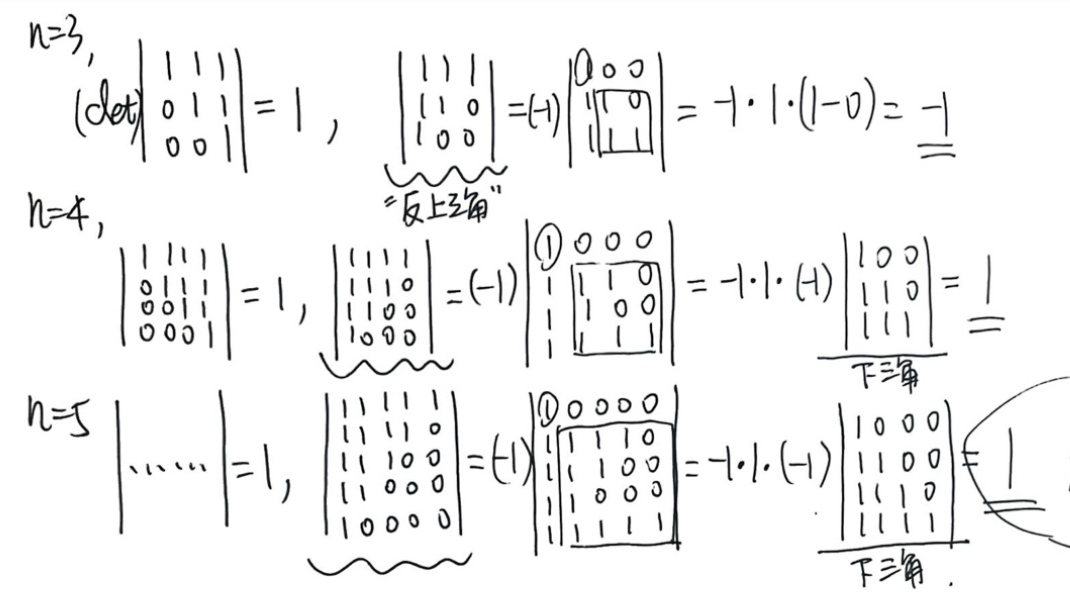 n=3,
(det) |1 1 1; 0 1 1; 0 0 1| = 1, |1 1 1; 1 1 0; 1 0 0| = (-1) |① 0 0; 1 1 0; 1 1 1| = -1·1·(1-0) = -1
"反上三角"
n=4,
|1 1 1 1; 0 1 1 1; 0 0 1 1; 0 0 0 1| = 1, |1 1 1 1; 1 1 1 0; 1 1 0 0; 1 0 0 0| = (-1) |① 0 0 0; 1 1 1 0; 1 1 0 0; 1 1 1 1| = -1·1·(-1) |1 0 0; 1 1 0; 1 1 1| = 1
下三角
n=5
|......| = 1, |1 1 1 1 1; 1 1 1 1 0; 1 1 1 0 0; 1 1 0 0 0; 1 0 0 0 0| = (-1) |① 0 0 0 0; 1 1 1 1 0; 1 1 1 0 0; 1 1 0 0 0; 1 1 1 1 1| = -1·1·(-1) |1 0 0 0; 1 1 0 0; 1 1 1 0; 1 1 1 1| = 1
下三角.